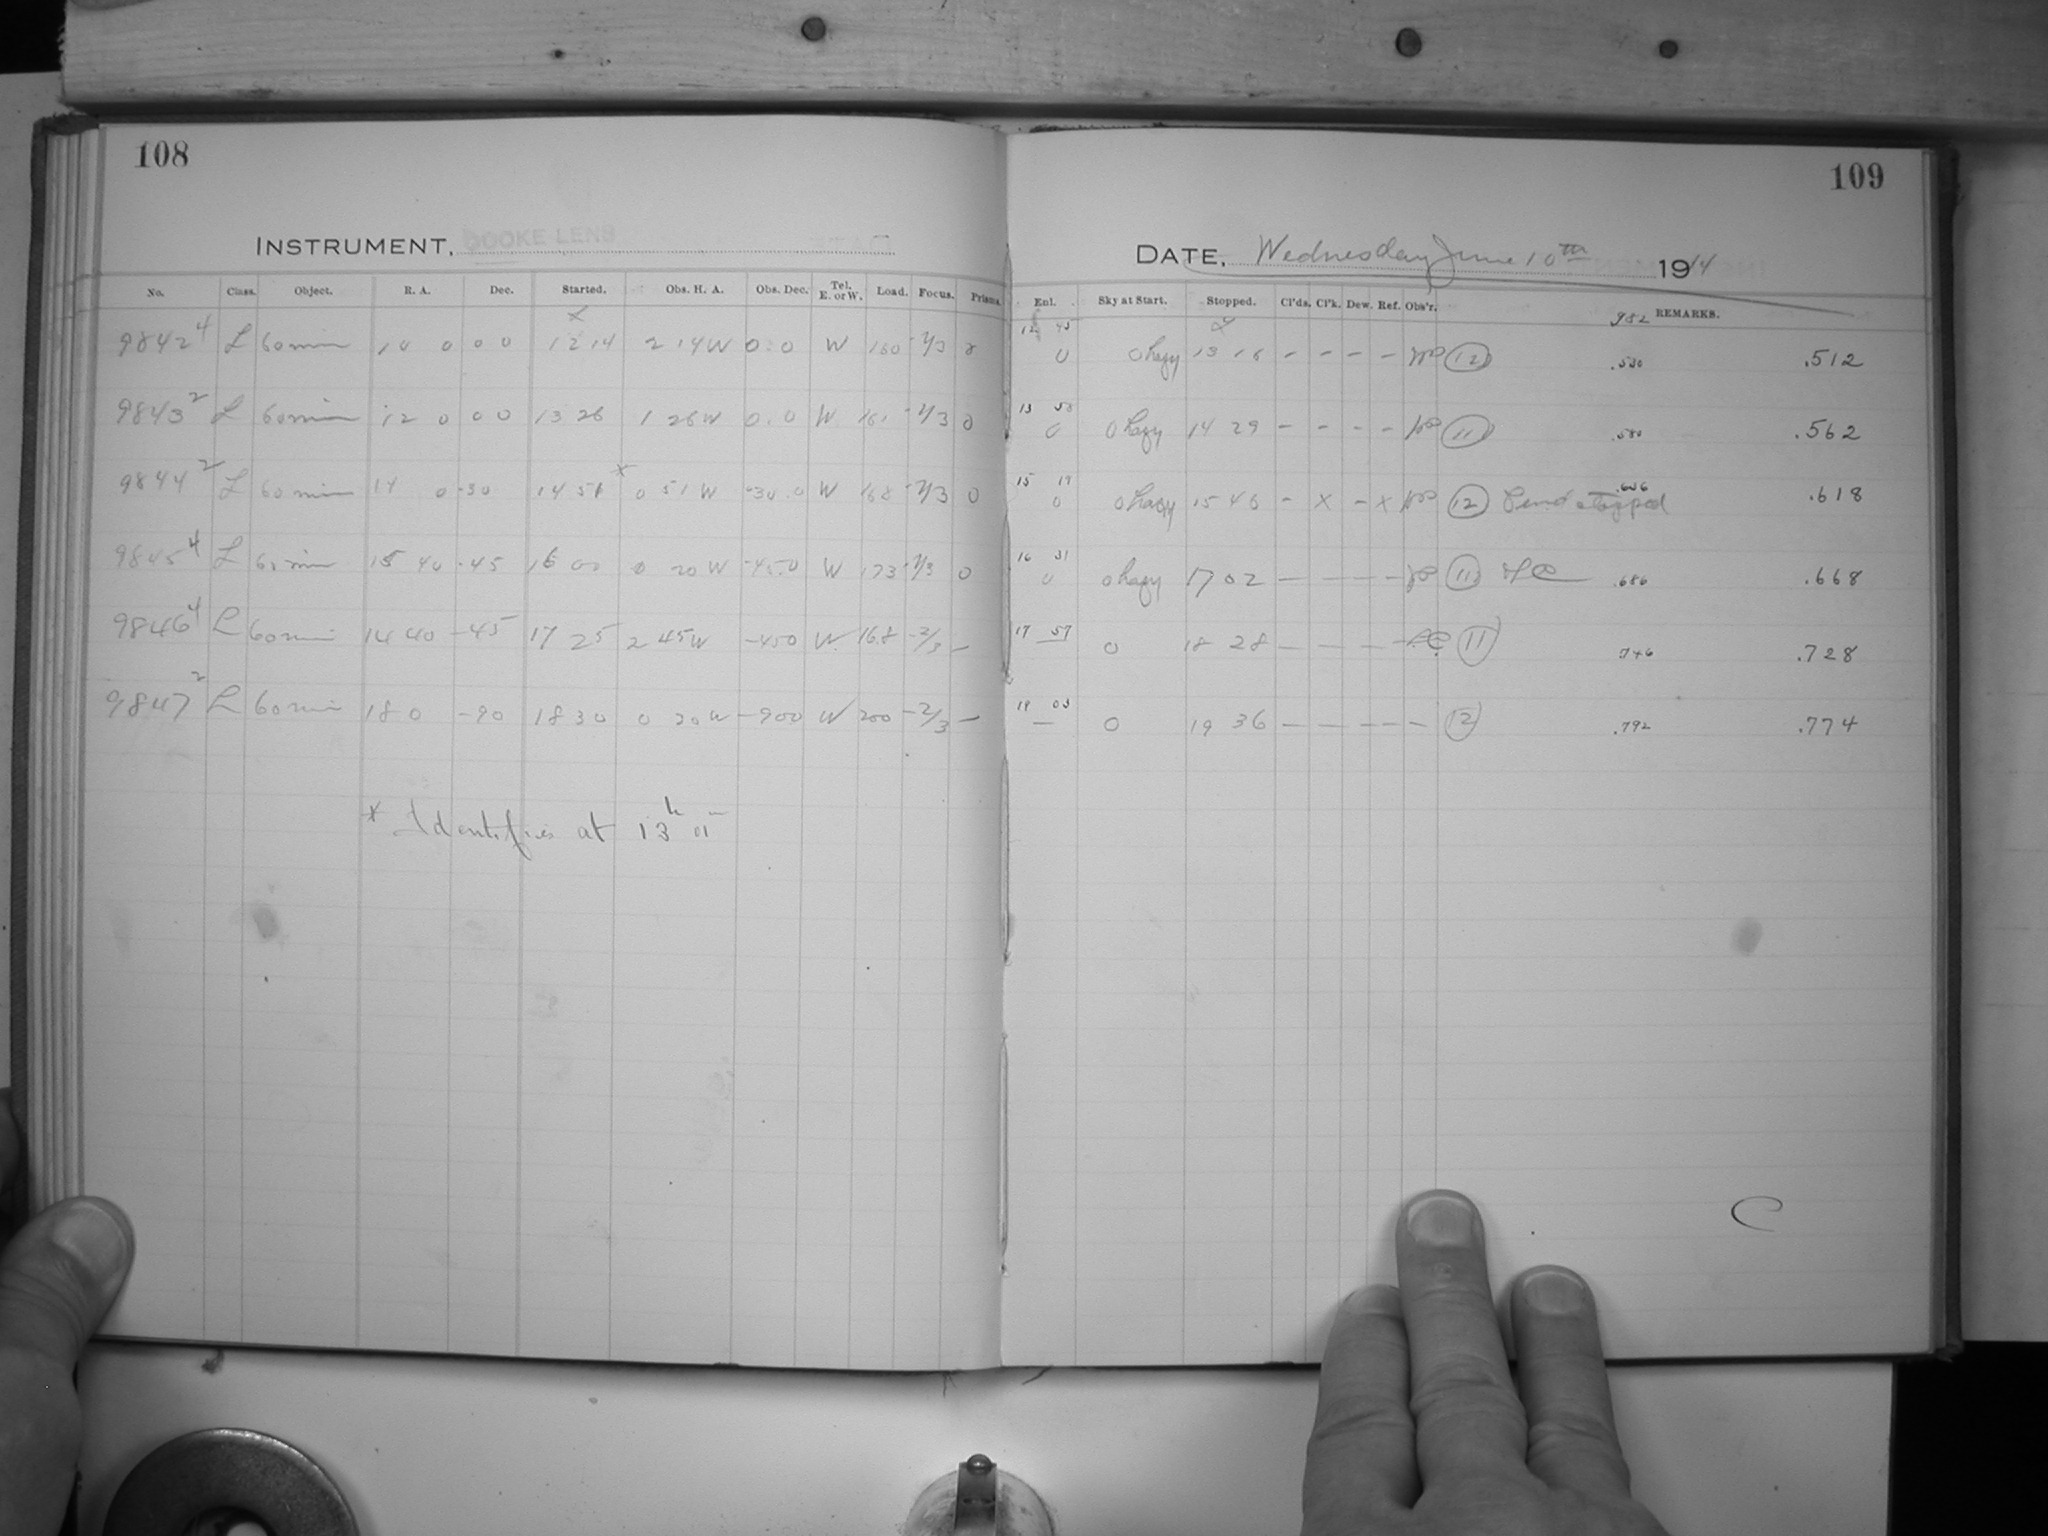 108
INSTRUMENT, COOKE LENS
No. Class. Object. R. A. Dec. Started. Obs. H. A. Obs. Dec. Tel. E. or W. Load. Focus. Prisms.
9842 4 L 60 min 10 0 0 0 12 14 2 14 W 0.0 W 160 -2/3 0
9843 2 L 60 min 12 0 0 0 13 26 1 26 W 0.0 W 161 -2/3 0
9844 2 L 60 min 14 0 -30 14 51 * 0 51 W -30.0 W 168 -2/3 0
9845 4 L 60 min 15 40 -45 16 00 0 20 W -45.0 W 173 -2/3 0
9846 4 L 60 min 14 40 -45 17 25 2 45 W -450 W 168 -2/3 —
9847 2 L 60 min 18 0 -90 18 30 0 30 W -900 W 200 -2/3 —
* Identifies at 13h 01m
109
DATE, Wednesday June 10th 1914
Enl. Sky at Start. Stopped. Cl'ds. Cl'k. Dew. Ref. Obs'r. 982 REMARKS.
12 45
0 0 hazy 13 16 - - - - (12) .530 .512
13 58
0 0 hazy 14 29 - - - - (11) .580 .562
15 19
0 0 hazy 15 48 - x - x (12) Pend stopped .636 .618
16 31
0 0 hazy 17 02 — — — — (11) .686 .668
17 57
0 18 28 — — — — (11) .746 .728
19 03
— 0 19 36 — — — — — (12) .792 .774
C